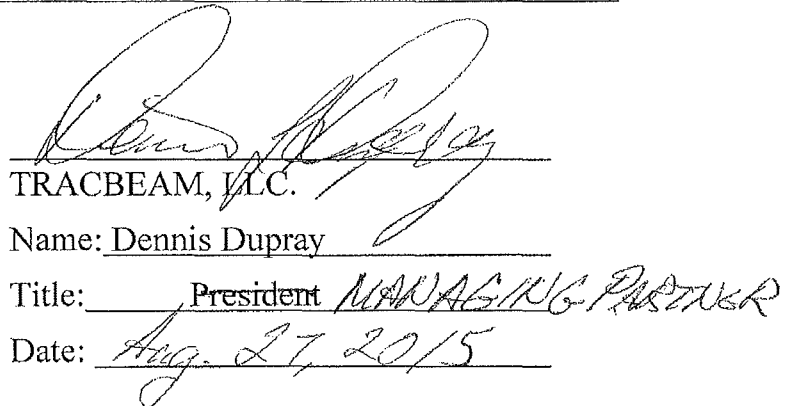 TRACBEAM, LLC.
Name: Dennis Dupray
Title: President MANAGING PARTNER
Date: Aug. 27, 2015